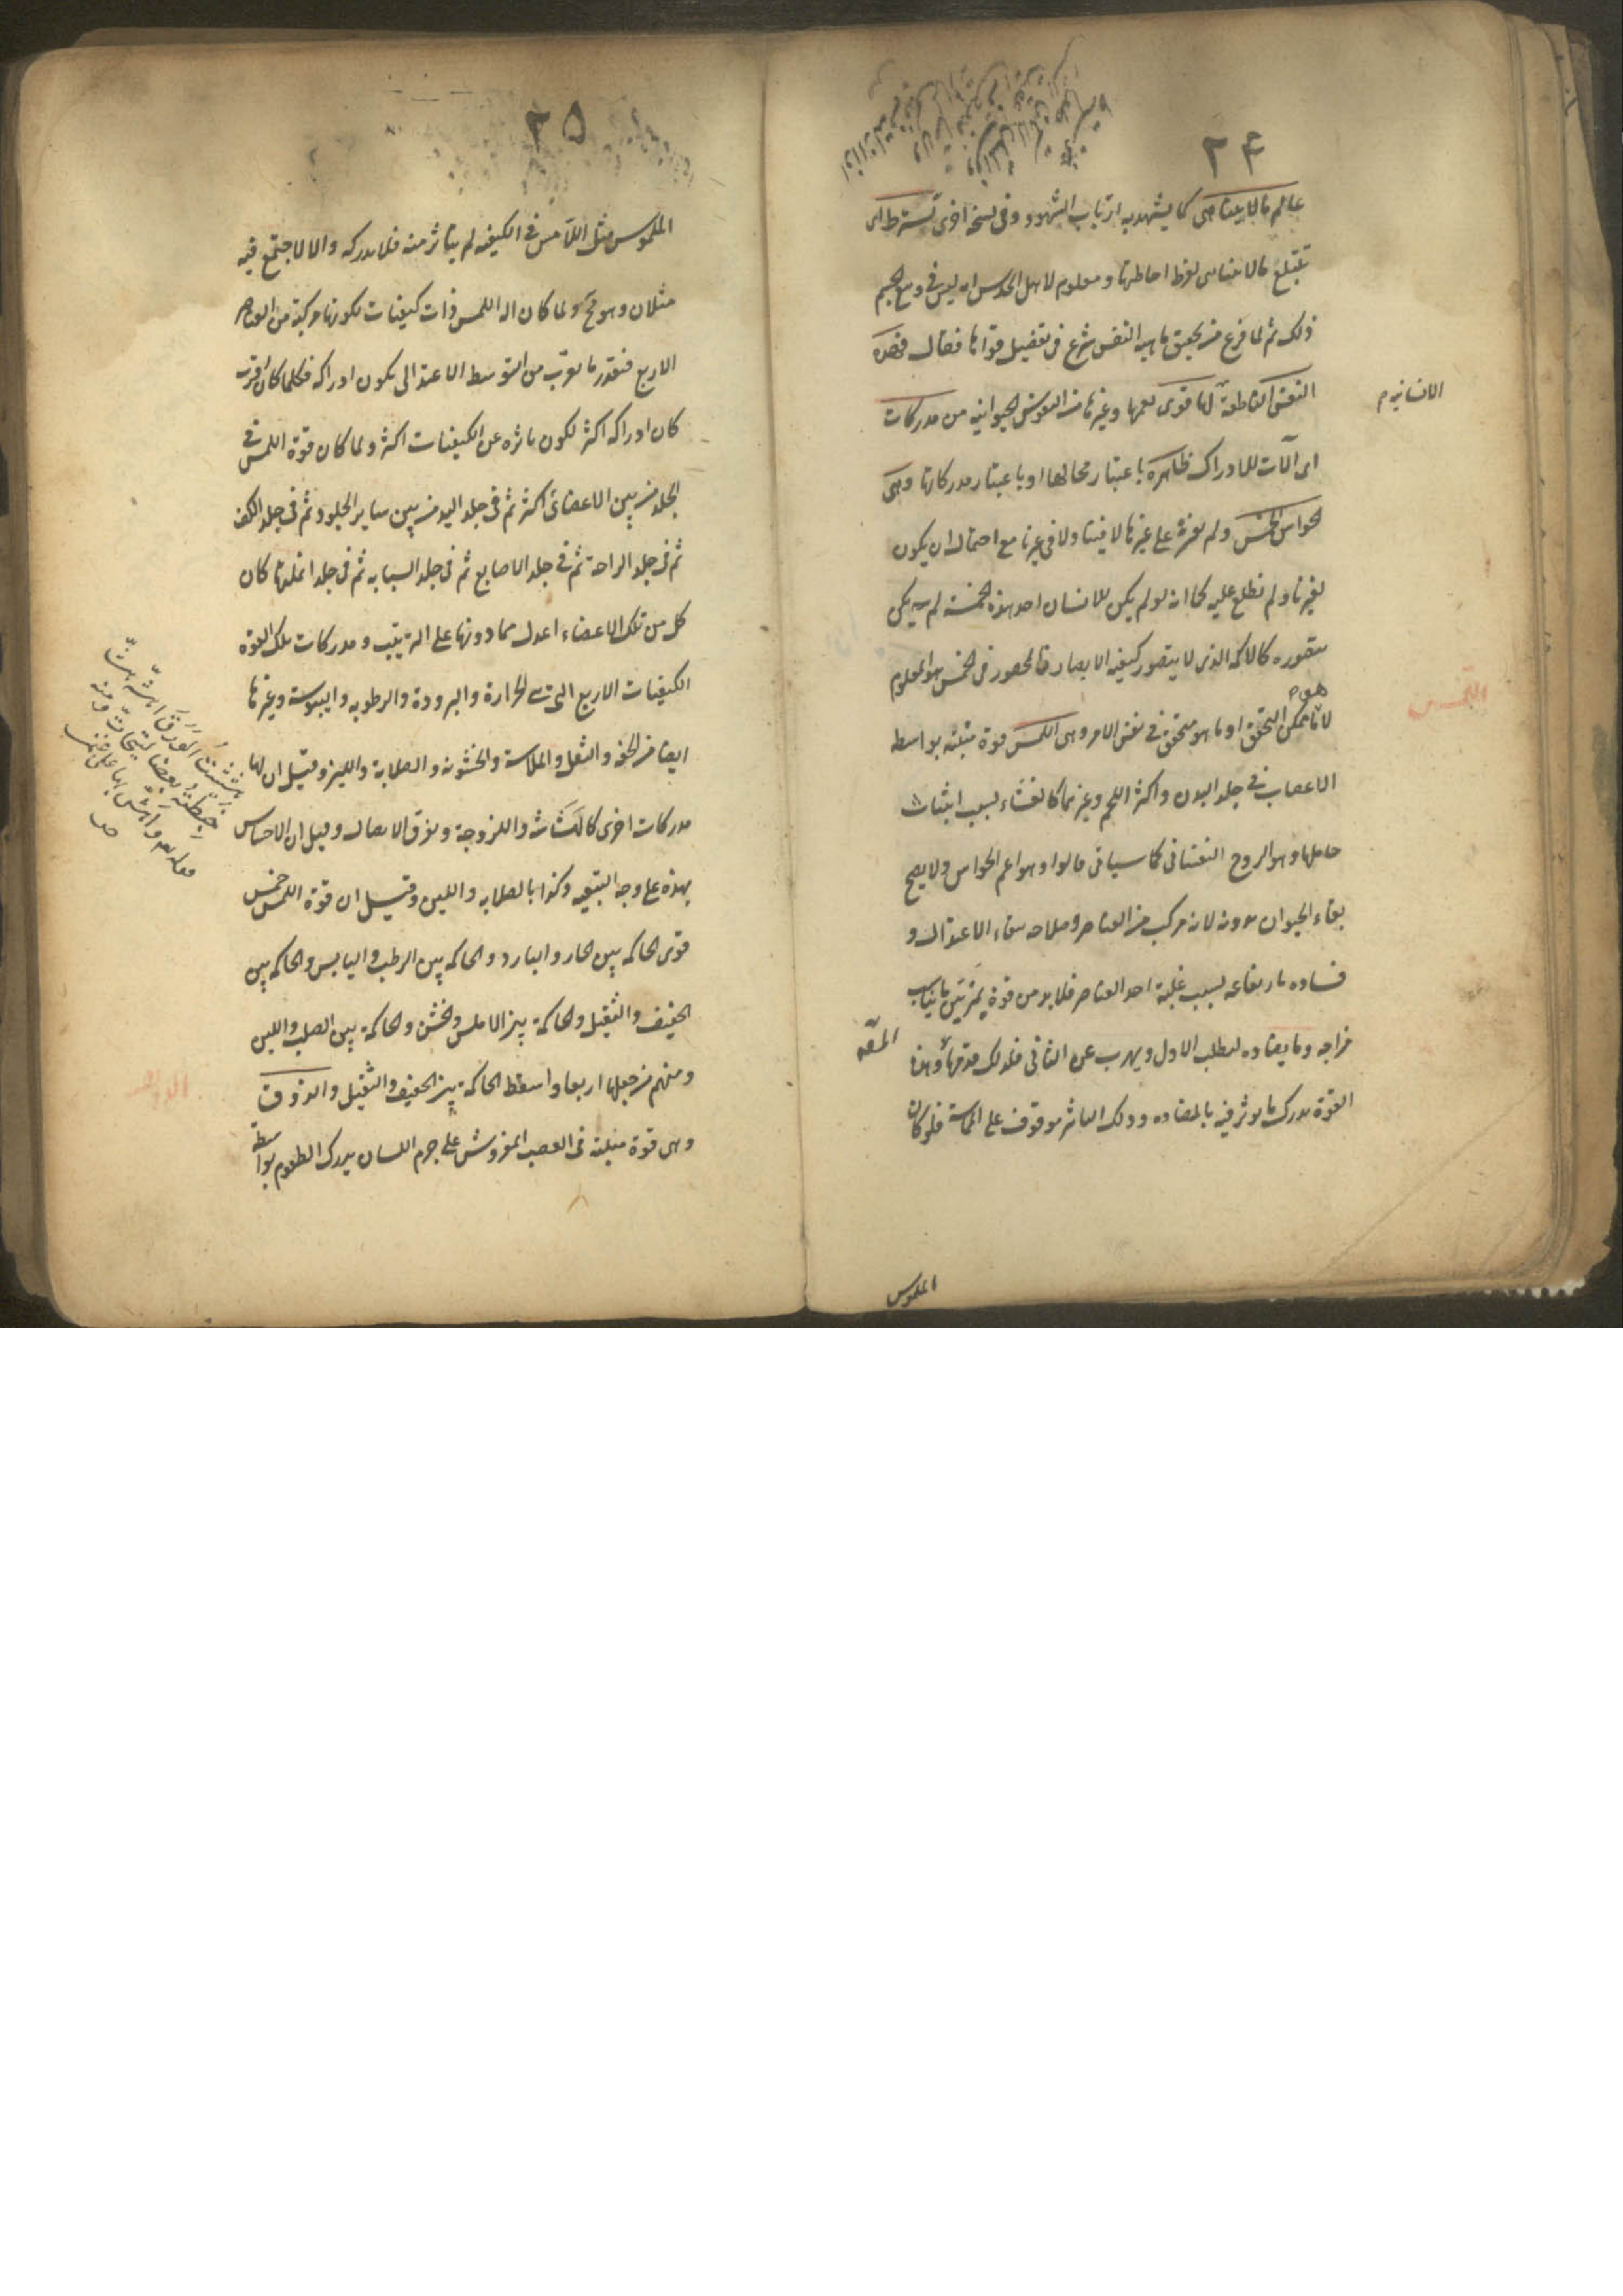 ٢٤
عالم ما لا يتناهى كما يشهد به ارباب الشهود وفى نسخة اخرى تسترط اى
تبتلع ما لا يتناهى لفرط احاطتها ومعلوم لاهل الحدس انه ليس فى وسع الجسم
ذلك ثم لما فرغ من تحقيق ماهية النفس شرع فى تفصيل قواها فقال فهذه
النفس الناطقة لها قوى تعمها وغيرها من النفوس الحيوانيه من مدركات
الانسانيه م
اى آلات للادراك ظاهرة باعتبار محالها او باعتبار مدركاتها وهى
الحواس الخمس ولم نعثر على غيرها لا فينا ولا فى غيرنا مع احتمال ان يكون
لغيرنا ولم نطلع عليه كما انه لو لم يكن للانسان احد هذه الخمسة لم يكن
يتصوره كالاكمه الذى لا يتصور كيفية الابصار فالمحصور فى الخمس هو المعلوم
لا ما هو ممكن التحقق او ما هو متحقق فى نفس الامر وهى اللمس قوة منبثة بواسطه
اللمس
الاعصاب فى جلد البدن واكثر اللحم وغيرهما كالغشاء بسبب انبثاث
حاملها وهو الروح النفسانى كما سياتى قالوا وهو اعم الحواس ولا يصح
بقاء الحيوان بدونه لانه مركب من العناصر وصلاحه ببقاء الاعتدال و
فساده بارتفاعه بسبب غلبة احد العناصر فلا بد من قوة يميز بين ما يناسب
مزاجه وما يضاده ليطلب الاول ويهرب عن الثانى فلذلك قدمها وهذه
القوة يدرك ما يوثر فيه بالمضاده وذلك التاثر موقوف على المماسة فلو كان
الملموس
٢٥
الملموس مثل اللامس فى الكيفيه لم يتاثر منه فلا يدركه والا لاجتمع فيه
مثلان وهو مح ولما كان اله اللمس ذات كيفيات لكونها مركبة من العناصر
الاربع فبقدر ما يقرب من التوسط الاعتدالى يكون ادراكه فكلما كان اقرب
كان ادراكه اكثر لكون تاثره عن الكيفيات اكثر ولما كان قوة اللمس فى
الجلد من بين الاعضاء اكثر ثم فى جلد اليد من بين ساير الجلود ثم فى جلد الكف
ثم فى جلد الراحة ثم فى جلد الاصابع ثم فى جلد السبابه ثم فى جلد انملتها كان
كل من تلك الاعضاء اعدل مما دونها على الترتيب ومدركات تلك القوة
الكيفيات الاربع التى هى الحرارة والبرودة والرطوبه واليبوسة وغيرها
ايضا من الخفة والثقل والملاسة والخشونه والصلابة واللين وقيل ان لها
مدركات اخرى كالهشاشة واللزوجة وتفرق الاتصال وقيل ان الاحساس
بهذه على وجه التبعيه وكذا بالصلابه واللين وقيل ان قوة اللمس خمس
قوى الحاكمه بين الحار والبارد والحاكمه بين الرطب واليابس والحاكمه بين
الخفيف والثقيل والحاكمة بين الاملس والخشن والحاكمة بين الصلب واللين
ومنهم من جعلها اربعا واسقط الحاكمة بين الخفيف والثقيل والذوق
وهى قوة منبثة فى العصب المفروش على جرم اللسان يدرك الطعوم بواسطة
هششت الورق اهشه هشا
خبطته بعصا ليتحات ومنه
قوله تعالى واهش بها على غنمى
ص